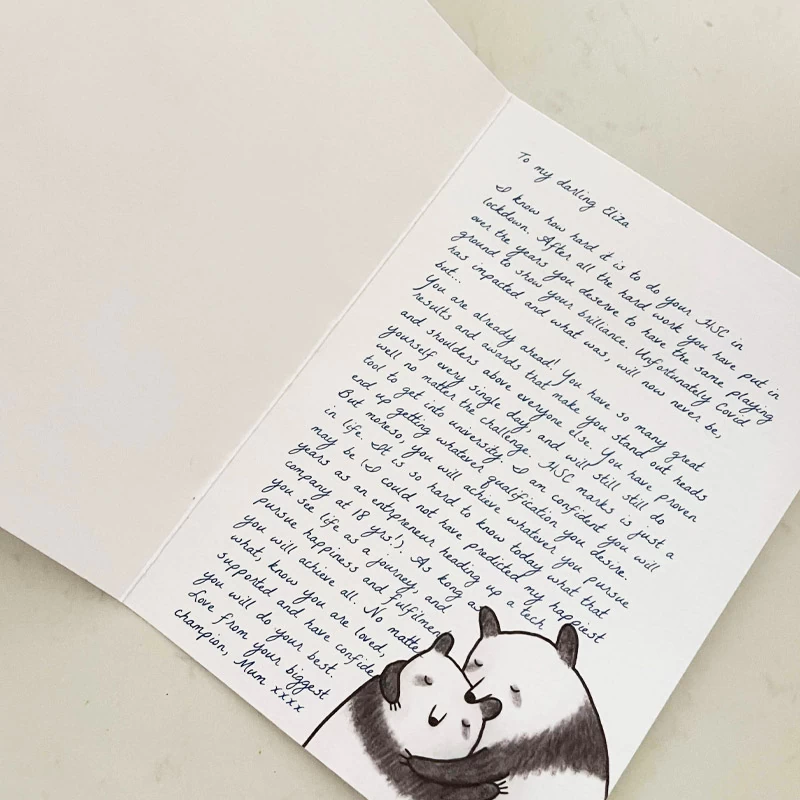 To my darling Eliza
I know how hard it is to do your HSC in
lockdown. After all the hard work you have put in
over the years you deserve to have the same playing
ground to show your brilliance. Unfortunately Covid
has impacted and what was, will now never be,
but...
You are already ahead! You have so many great
results and awards that make you stand out heads
and shoulders above everyone else. You have proven
yourself every single day, and will still still do
well no matter the challenge. HSC marks is just a
tool to get into university. I am confident you will
end up getting whatever qualification you desire.
But moreso, you will achieve whatever you pursue
in life. It is so hard to know today what that
may be (I could not have predicted my happiest
years as an entrepreneur heading up a tech
company at 18 yrs!). As kong as
you see life as a journey, and
pursue happiness and fulfilmen
you will achieve all. No matte
what, know you are loved,
supported and have confide
you will do your best.
Love from your biggest
champion, Mum xxxx